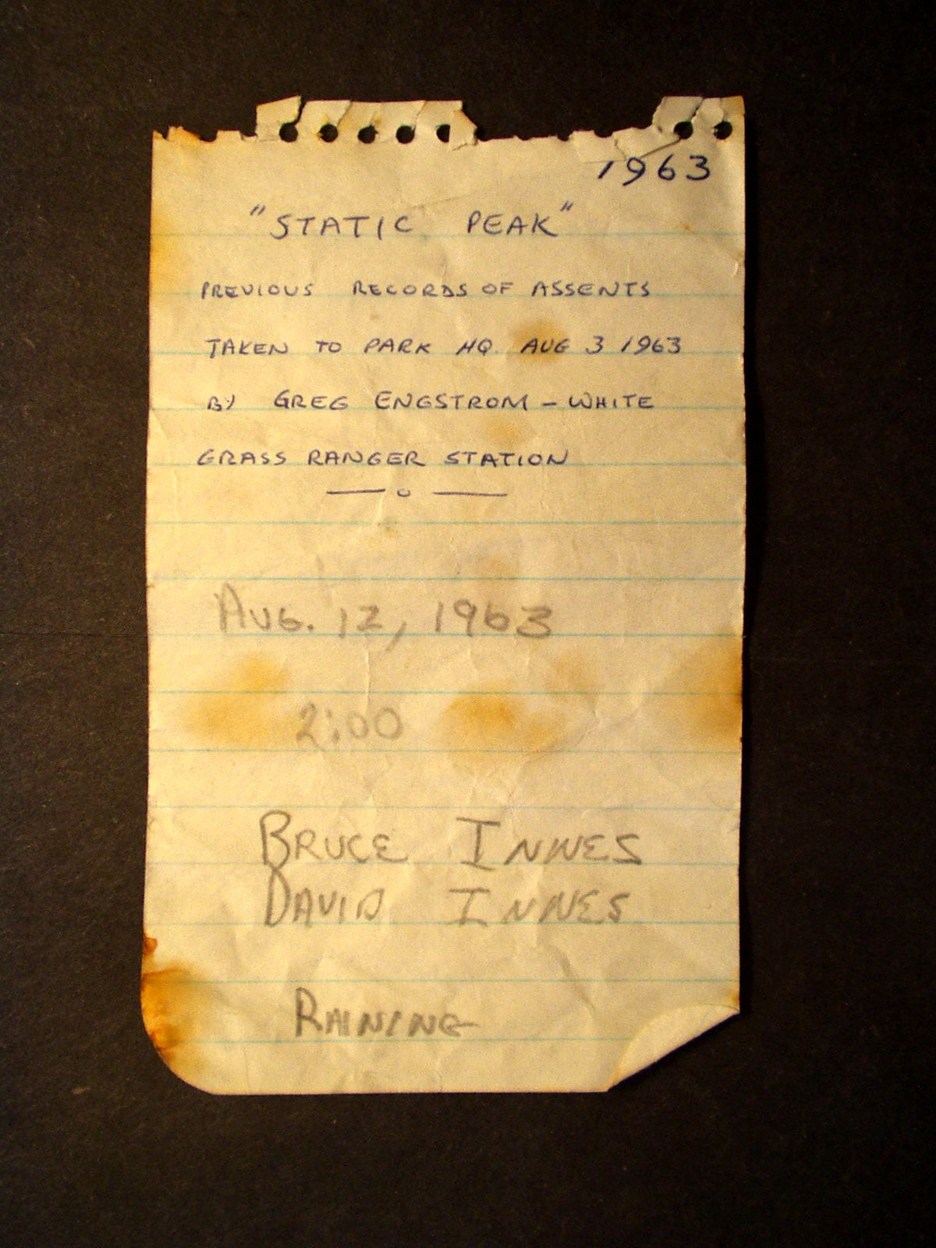 1963
"STATIC PEAK"
PREVIOUS RECORDS OF ASSENTS
TAKEN TO PARK HQ. AUG 3 1963
BY GREG ENGSTROM - WHITE
GRASS RANGER STATION
— o —
AUG. 12, 1963
2:00
BRUCE INNES
DAVID INNES
RAINING